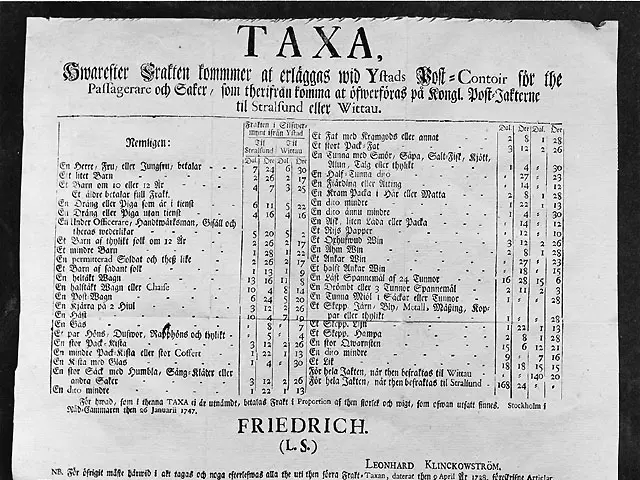 TAXA,
Hwarefter Frakten kommmer at erläggas wid Ystads Post-Contoir för the
Passagerare och Saker, som therifrån komma at öfwerföras på Kongl. Post-Jakterne
til Stralsund eller Wittau.
Nemligen:
Frakten i Silfwer-
mynt ifrån Ystad
Til Stralsund Til Wittau
Dal. Öre Dal. Öre
En Herre, Fru, eller Jungfru, betalar 7 24 6 30
Et litet Barn 2 26 2 17
Et Barn om 10 eller 12 År 4 7 3 25
Et äldre betalar full Frakt.
En Dräng eller Piga som är i tienst 6 11 5 22
En Dräng eller Piga utan tienst 4 16 4 16
En Under Officerare, Handtwärksman, Gesäll och
theras wederlikar 5 20 5 2
Et Barn af thylikt folk om 12 År 2 26 2 17
Et mindre Barn 1 28 1 22
En permitterad Soldat och thess like 2 26 2 17
Et Barn af sådant folk 1 13 1 9
En heltäkt Wagn 13 16 11 8
En halftäkt Wagn eller Chaise 10 4 8 14
En Post-Wagn 6 24 5 20
En Kjärra på 2 Hiul 3 12 2 26
En Häst 10 4 7 19
En Gås - 8 - 7
Et par Höns, Dufwor, Rapphöns och thylikt - 5 - 4
En stor Pack-Kista 3 12 2 26
En mindre Pack-Kista eller stor Coffert 1 22 1 13
En Kista med Glas 1 4 - 30
En stor Säck med Humbla, Säng-Kläder eller
andra Saker 3 12 2 26
En dito mindre 1 22 - 13
Dal. Öre Dal. Öre
Et Fat med Kramgods eller annat 2 8 1 28
Et stort Pack-Fat 3 12 2 26
En Tunna med Smör, Såpa, Salt-Fisk, Kjött,
Alun, Talg eller thylikt 1 4 - 30
En Half-Tunna dito - 27 - 23
En Fjärding eller Atting - 14 - 12
En Kram Packa i Här eller Matta 2 8 1 28
En dito mindre 1 22 1 13
En dito ännu mindre 1 4 - 30
En Ask, liten Låda eller Packa - 14 - 12
Et Rijs Papper - 12 - 10
Et Oxhufwud Win 3 12 2 26
En Åhm Win 2 8 1 28
Et Ankar Win - 27 - 23
Et halft Ankar Win - 18 - 15
En Läst Spannemål af 24 Tunnor 16 28 15 6
En Drömbt eller 3 Tunnor Spannemål 2 11 2 3
En Tunna Miöl i Säckar eller Tunnor 1 - - 28
Et Skepp. Järn, Bly, Metall, Mässing, Kop-
par eller thylikt 1 4 - 28
Et Skepp. Lijn 1 22 1 13
Et Skepp. Hampa 2 8 1 28
En stor Qwarnsten 15 6 12 21
En dito mindre 9 - 7 16
Et Lik 18 18 15 15
För hela Jakten, när then befraktas til Wittau - - 140 20
För hela Jakten, när then befraktas til Stralsund 168 24 - -
För hwad, som i thenna TAXA ei är utnämdt, betalas Frakt i Proportion af then storlek och wigt, som ofwan utsatt finnes. Stockholm i
Råd-Cammaren then 26 Januarii 1747.
FRIEDRICH.
(L. S.)
LEONHARD KLINCKOWSTRÖM.
NB. För öfrigit måste härwid i akt tagas och noga efterlefwas alla the uti then förra Frakt-Taxan, daterat then 9 April År 1738. föreskrifne Articlar